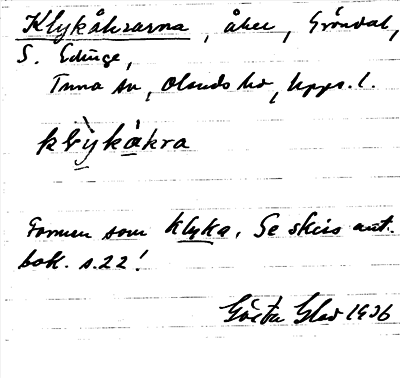 Klykåkrarna, åker, Gröndal,
S. Edinge,
Tuna sn, Olands hd, Upps. l.
klỳkàkra
Formen som klyka. Se skiss ant.
bok. s. 22!
Gösta 1936